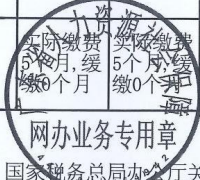 实际缴费
5个月,缓
缴0个月
实际缴费
5个月,缓
缴0个月
人力资源社会保障
网办业务专用章
国家税务总局办公厅关